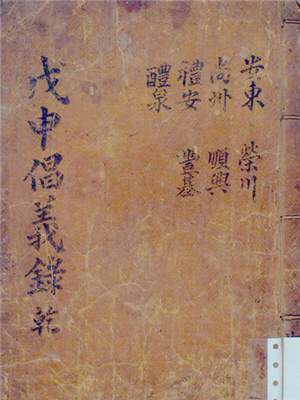 戊申倡義錄 乾
安東 榮川
尙州 順興
禮安 豊基
醴泉